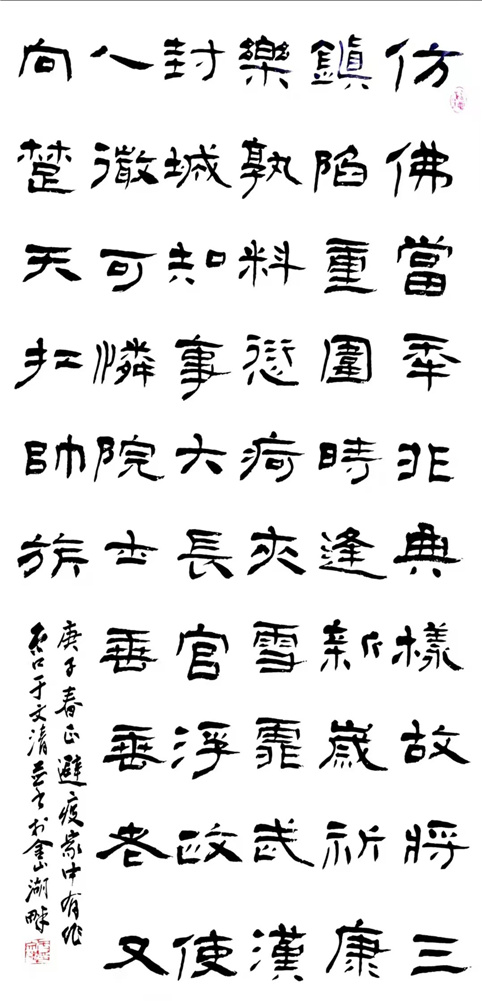 仿佛當年非典樣故將三
鎮陷重圍時逢新歲祈康
樂孰料愆疴夾雪霏武漢
封城知事大長官浮政使
人微可憐院士垂垂老又
向楚天扛帥旂
庚子春正避疫家中有作
于文清并書於金山湖畔